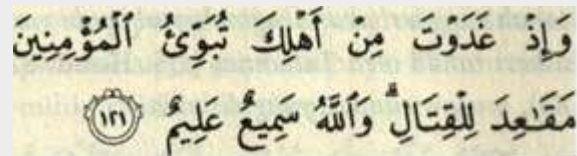 وَإِذْ غَدَوْتَ مِنْ أَهْلِكَ تُبَوِّئُ الْمُؤْمِنِينَ
مَقَاعِدَ لِلْقِتَالِ ۗ وَاللَّهُ سَمِيعٌ عَلِيمٌ ١٢١